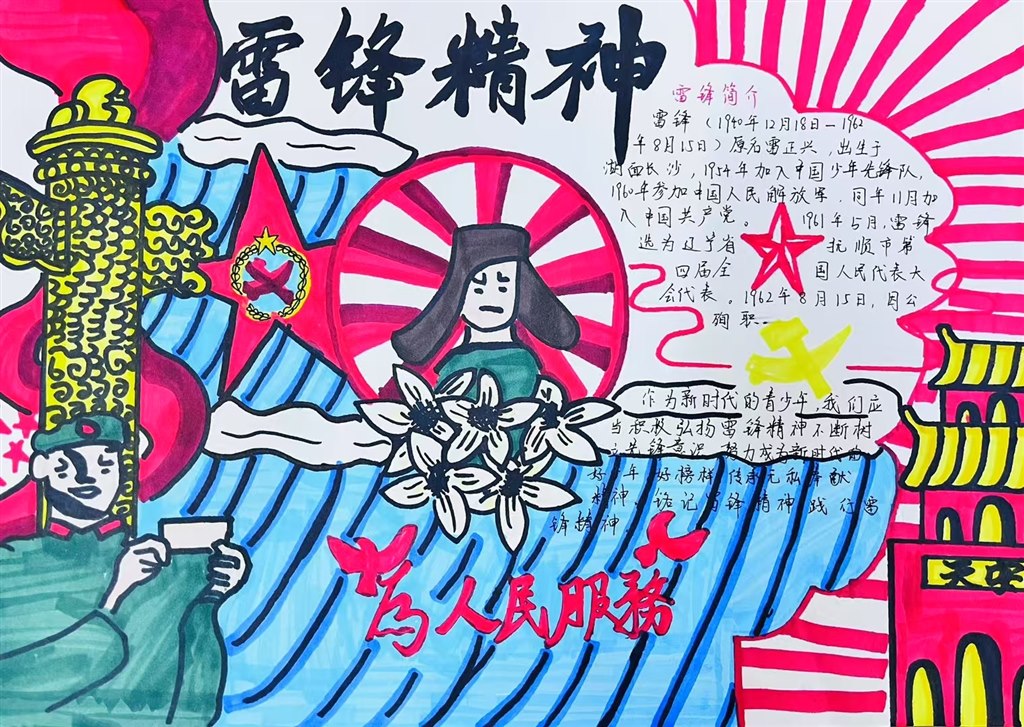 雷锋精神
雷锋简介
雷锋（1940年12月18日—1962
年8月15日）原名雷正兴，出生于
湖南长沙，1954年加入中国少年先锋队，
1960年参加中国人民解放军，同年11月加
入中国共产党。 1961年5月，雷锋
选为辽宁省 抚顺市第
四届全 国人民代表大
会代表。1962年8月15日，因公
殉职。
作为新时代的青少年，我们应
当积极弘扬雷锋精神不断树
立先锋意识，努力成为新时代的
好少年，好榜样，传承无私奉献
精神。铭记雷锋精神践行雷
锋精神。
为人民服務
天安